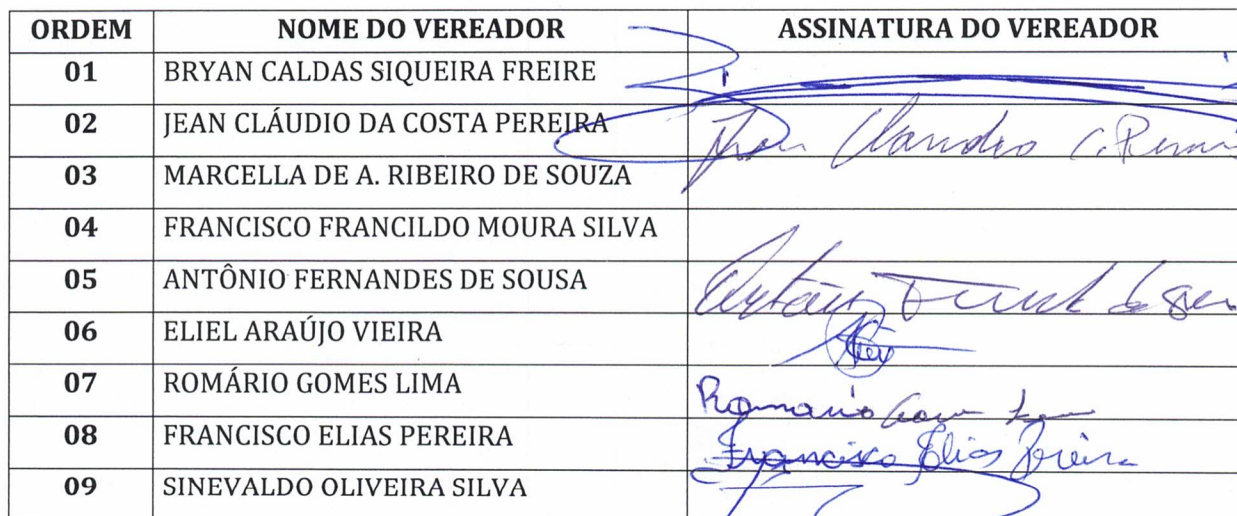 ORDEM NOME DO VEREADOR ASSINATURA DO VEREADOR
01 BRYAN CALDAS SIQUEIRA FREIRE
02 JEAN CLÁUDIO DA COSTA PEREIRA
03 MARCELLA DE A. RIBEIRO DE SOUZA
04 FRANCISCO FRANCILDO MOURA SILVA
05 ANTÔNIO FERNANDES DE SOUSA
06 ELIEL ARAÚJO VIEIRA
07 ROMÁRIO GOMES LIMA Romario
08 FRANCISCO ELIAS PEREIRA Francisco Elias Pereira
09 SINEVALDO OLIVEIRA SILVA